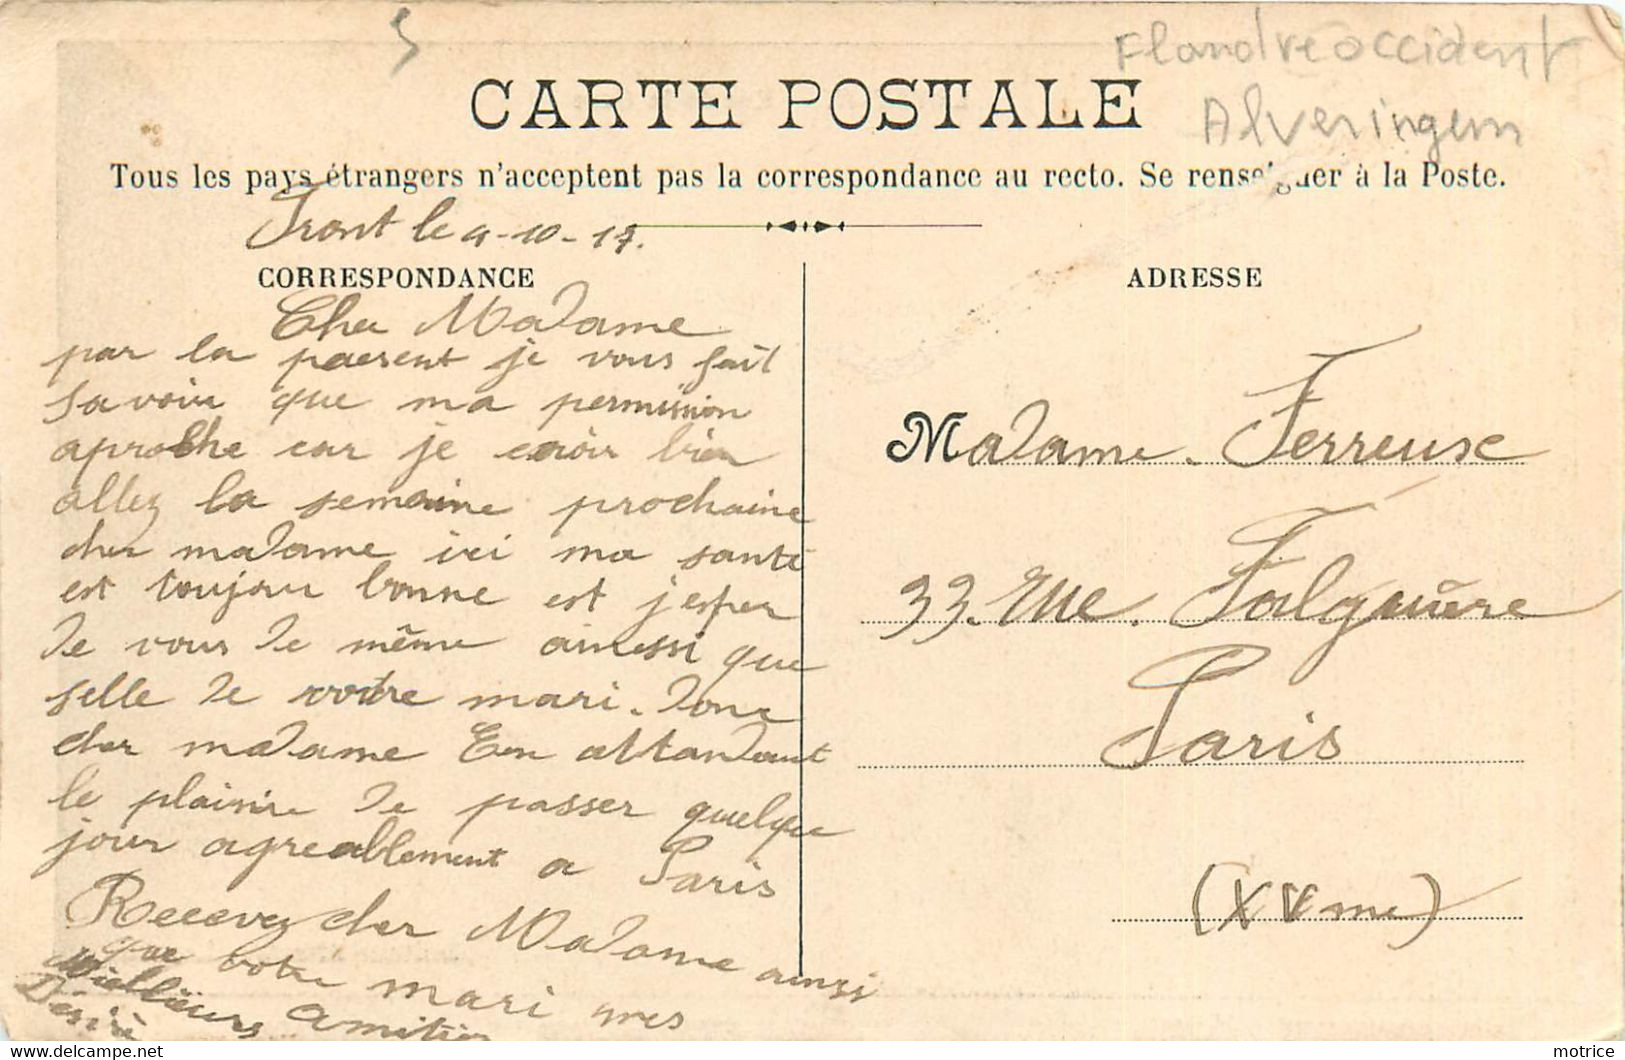 Flandre occident
Alveringem
CARTE POSTALE
Tous les pays étrangers n'acceptent pas la correspondance au recto. Se renseigner à la Poste.
Front le 4-10-17.
CORRESPONDANCE
Cher Madame
par la paesent je vous fait
savoir que ma permission
aproche car je croir bien
allez la semaine prochaine
cher madame ici ma santé
est toujour bonne est j'esper
de vous de même ainssi que
selle de votre mari. Donc
cher madame En attandant
le plaisire de passer quelque
jour agreablement a Paris
Recevez cher Madame ainsi
que votre mari mes
Meilleurs amitier
Désiré
ADRESSE
Madame Ferreuse
33. Rue. Falguière
Paris
(XVme)
delcampe.net
motrice